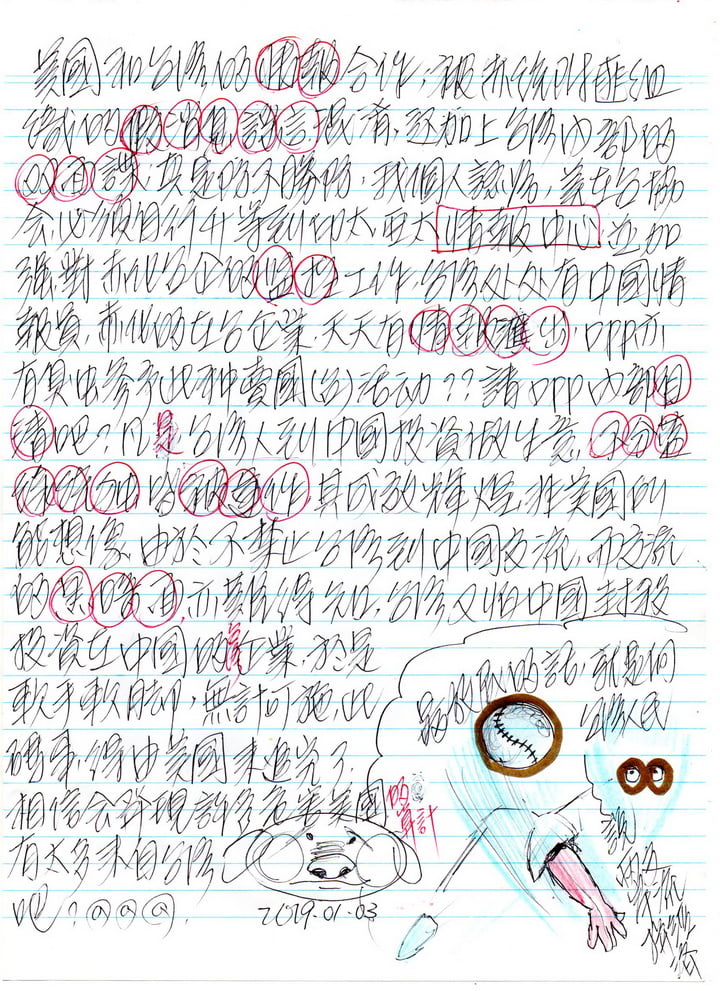 美國和台灣的情報合作,被赤統附匪組
織的假消息謠言混淆,還加上台灣內部的
双面諜,真是防不勝防,我個人認為,美在台協
會必須自行升等到印太亞太情報中心,並加
強對赤化台企的監控工作,台灣处处有中國情
報員,赤化的在台企業,天天有情報滙出,DPP亦
有具出參予此种賣國(台)活动??請DPP內部自
清吧?凡是台灣人到中國投資做生意,
皆被運作,其成效輝煌,非美國所
能想像,由於不禁止台灣到中國交流,而交流
的黑暗面,亦莫能得知,台灣又怕中國封殺
投資在中國的台企業,於是
軟手軟脚,無計可施,此
碼事,得由美國來追究了,
相信会發現許多危害美國的算計
有太多來自台灣
吧?@@@,
2019.01.03
最收歛的話,就是向
台灣人民
說
兩岸
交流